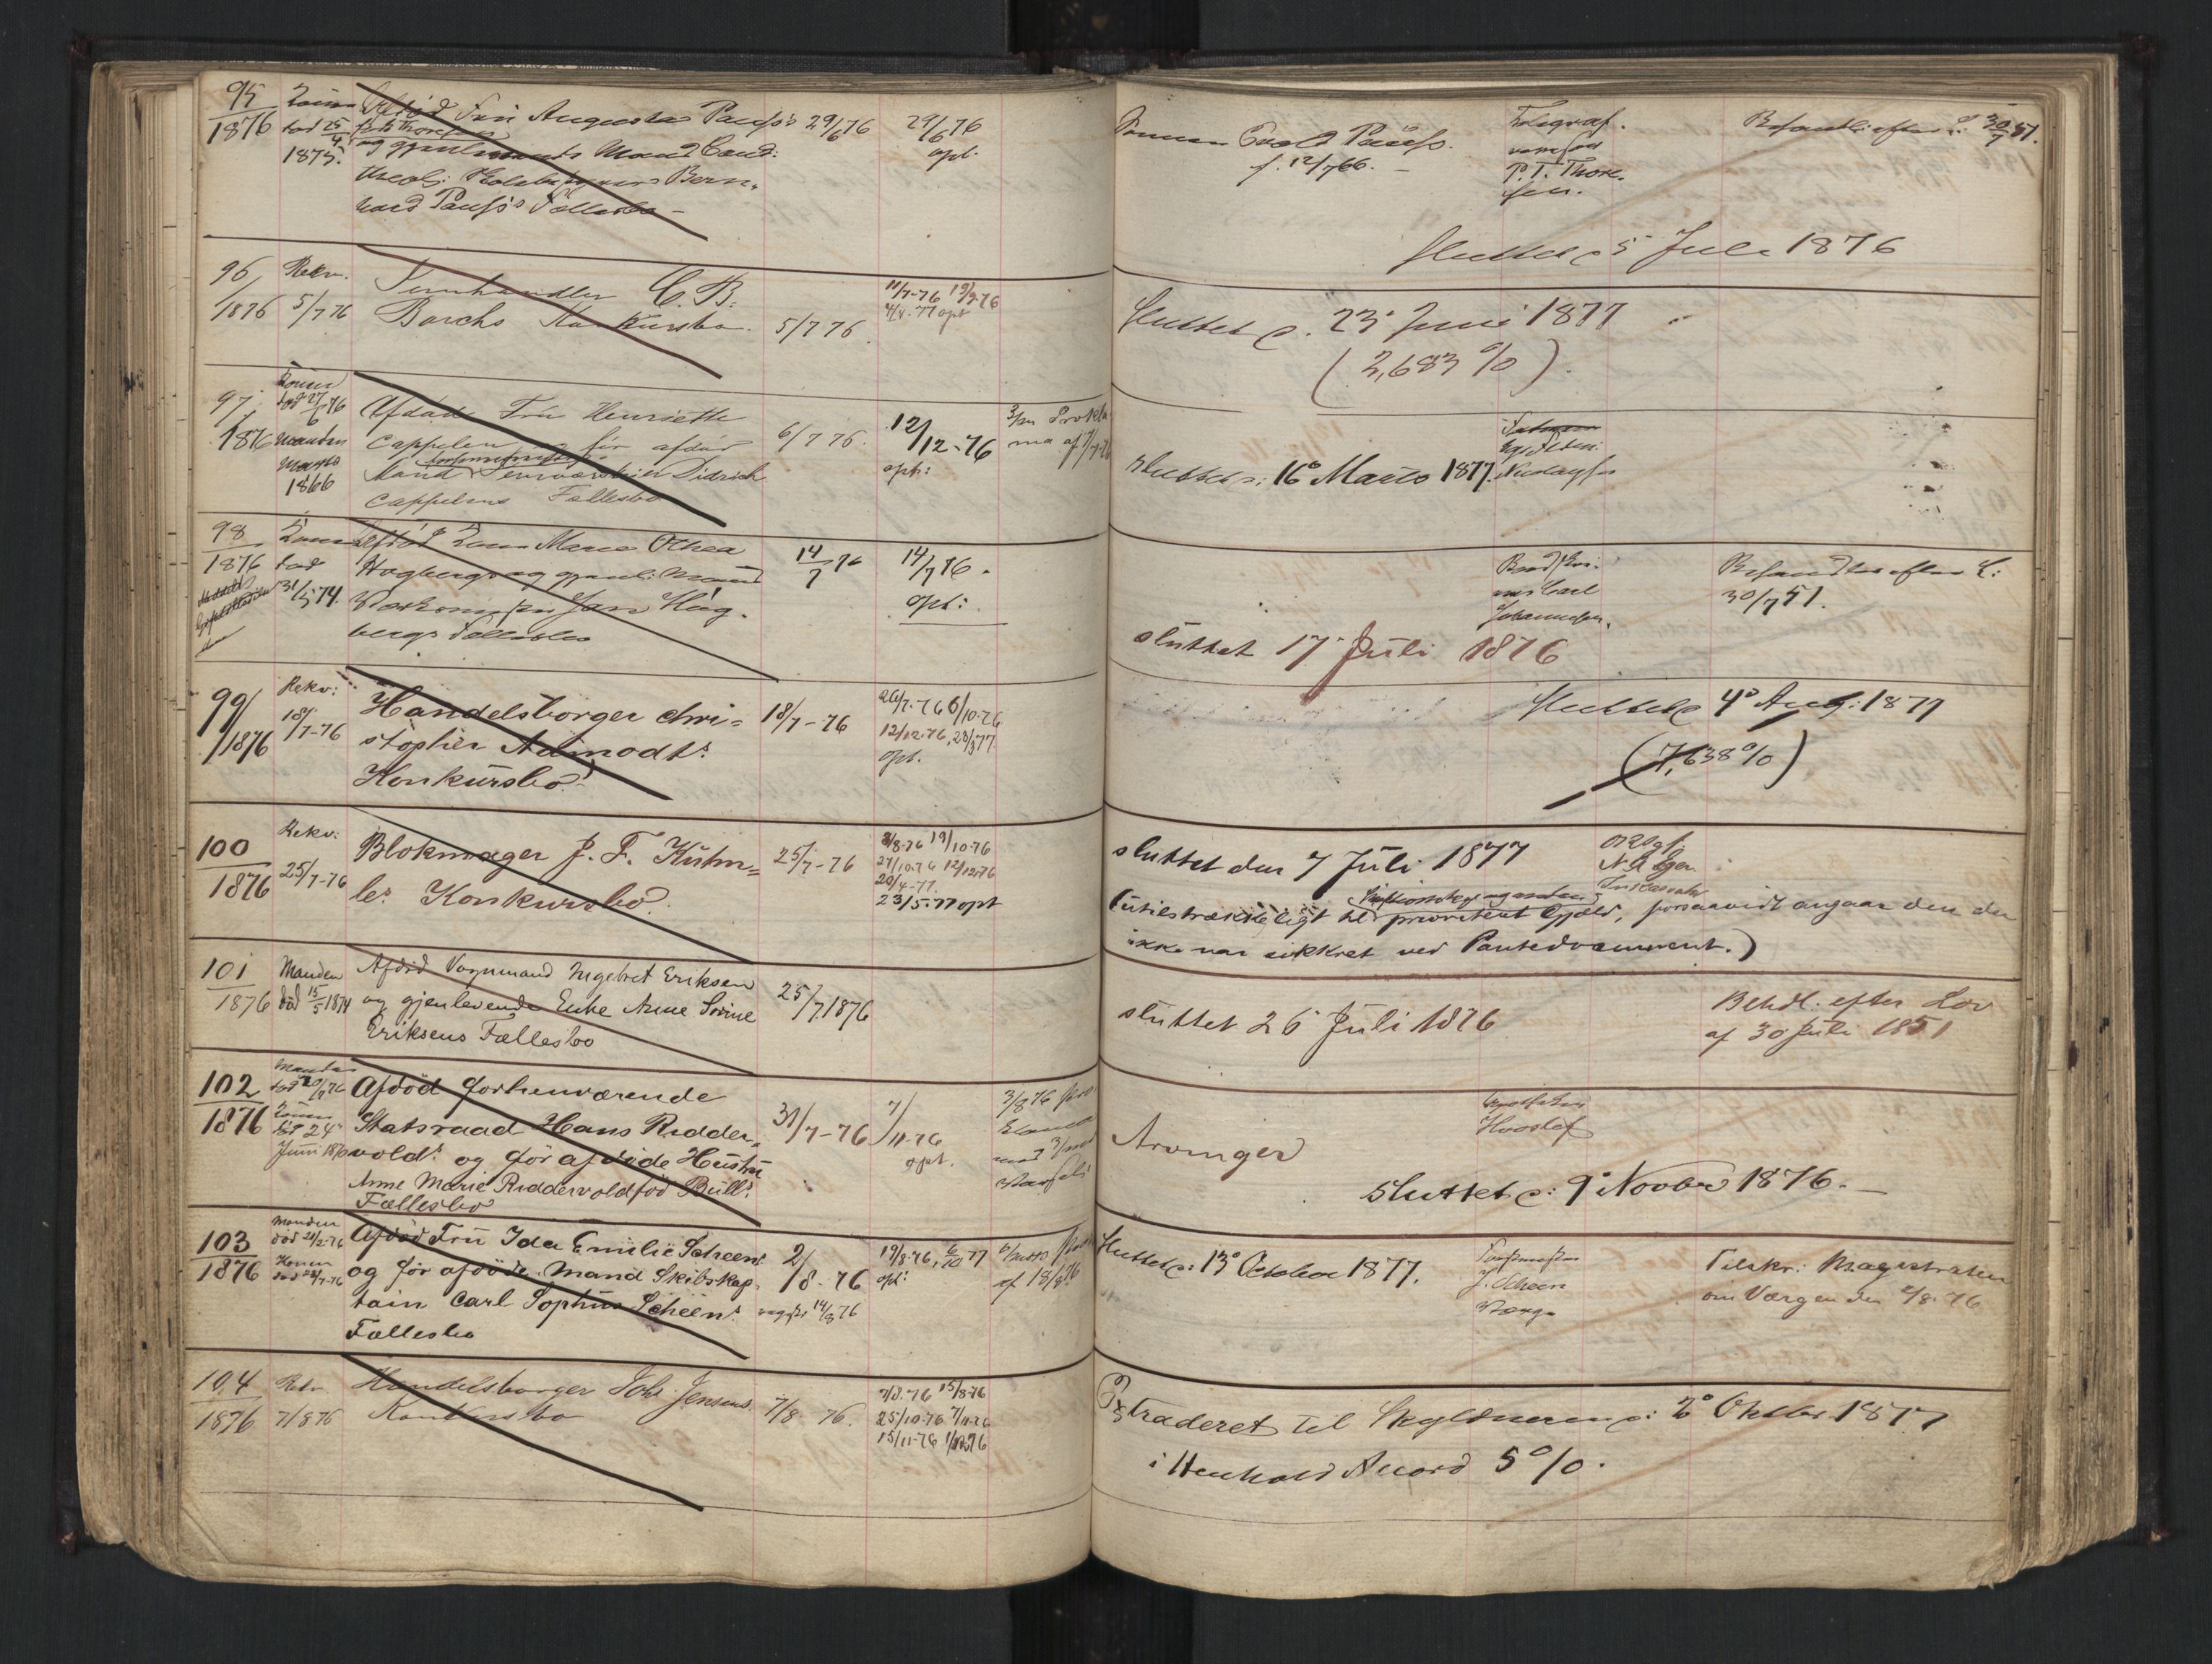 95
1876
Konen
død 25/4
1875.
Afdød Fru Augusta Pauss's
født Thoresen
og gjenlevende Mand Cand:
theol: Skolebestyrer Bern-
hard Pauss's Fællesbo –
29/6 76
29/6 76
opt.
Sønnen Pauss.
f. 12/7 66. –
Telegraf-
P. T. Thore-
sen.
Behandles efter L: 30/7 51.
sluttet 5 Juli 1876
96
1876
Rekv.
5/7 76
Jernhandler C. B.
Borchs Konkursbo.
5/7 76.
11/7-76 19/9-76
4/4-77 opt
Sluttet d. 23 Juni 1877
(2,683 %).
97
1876
Konen
død 27/6 76
Manden
Marts
1866
Afdøde Fru Henriette
Cappelen og før afdøde
Mand Didrich
Cappelens Fællesbo
6/7 76.
12/12-76
opt:
3/m Prokla-
ma af
Sluttet d: 16 Marts 1877.
98
1876
Konen
død
31/5 74.
Afdød Kone Marie Othea
Hogbergs og gjenl: Mand
Jan Hog-
bergs Fællesbo
14/7 76
14/7 76.
opt:
sluttet 17 Juli 1876
Carl
Johannesen.
Behandles efter L:
30/7 51.
99
1876
Rekv:
18/7-76
Handelsborger Chri-
stopher Aamodts
Konkursbo.
18/7-76
26/7-76 6/10-76
12/12-76, 23/3 77.
opt.
Sluttet d 4 Aug: 1877
(7,638 %)
100
1876
Rekv:
25/7-76
Blokmager J. F. Kuhn-
les Konkursbo.
25/7-76
8/8-76 19/10-76
27/10-76 12/12-76
20/4-77.
23/5-77 opt
sluttet den 7 Juli 1877
(utilstrækkeligt til prioriteret Gjæld, forsaavidt angaar den der
ikke var sikkret ved Pantedocument.)
101
1876
Manden
død 15/5 1874
Afdød Vognmand Ingebret Eriksen
og gjenlevende Enke Anne Sorine
Eriksens Fællesbo
25/7 1876
sluttet 26 Juli 1876
Behdl. efter Lov
af 30 Juli 1851
102
1876
Manden
død 20/7 76
Konen
død 24
Juni
Afdød forhenværende
Statsraad Hans Ridder-
volds og før afdøde Hustru
Anne Marie Riddervold fød Bulls
Fællesbo
31/7-76
7/11-76
opt.
3/8 76
Arvinger
sluttet d: 9 Novbr 1876. –
103
1876
Manden
død 21/2-76
Konen
Afdød Fru Ida Emilie Scheens
og før afdøde Mand Skibskap-
tain Carl Sophus Scheens
Fællesbo
2/8-76
14/8 76
19/8-76, 6/10 77
opt:
af 18/8 76
Sluttet d: 13 October 1877.
J. Scheen
Værge
Tilskr: Magistraten
om Værgen den 2/8-76
104
1876
Rekv
7/8 76
Handelsborger Johs Jensens
Konkursbo
7/8 76.
7/8-76 15/8-76
25/10-76 7/11-76
15/11-76
Extraderet til Skyldneren d: 2 Oktbr 1877
i Henhold Accord 5 %.